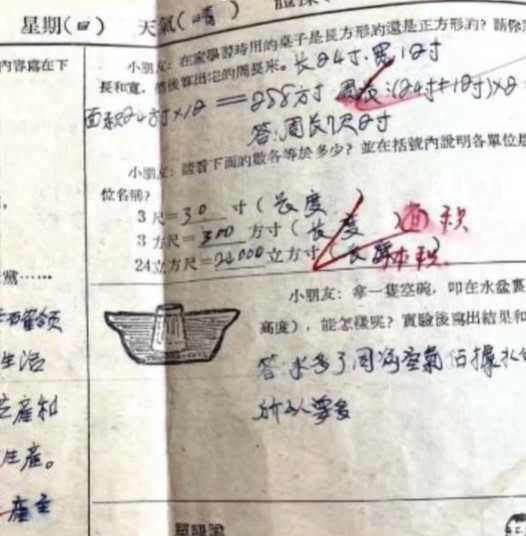 星期(四) 天氣(晴)
內容寫在下
小朋友:在家學習時用的桌子是長方形的還是正方形的?請你
長和寬,然後算出它的周長來。长24寸.宽12寸
面积24寸×12=288方寸 周长:(24寸+12寸)×2
答:周长7尺2寸
小朋友:請看下面的數各等於多少?並在括號內說明各單位是
位名稱?
3尺=30寸(长度)
3方尺=300方寸(长度)面积
24立方尺=24000立方寸(长度 体积
黨……
小朋友:拿一隻空碗,叩在水盆裏
高度),能怎樣呢?實驗後寫出結果和
答:水多了因为空氣佔據
所以
生活
生產。